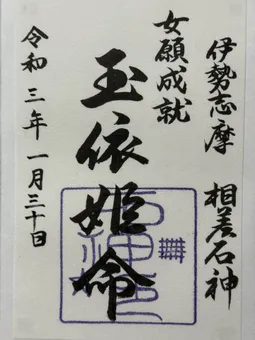 伊勢志摩 相差石神
女願成就
玉依姫命
令和三年一月三十日